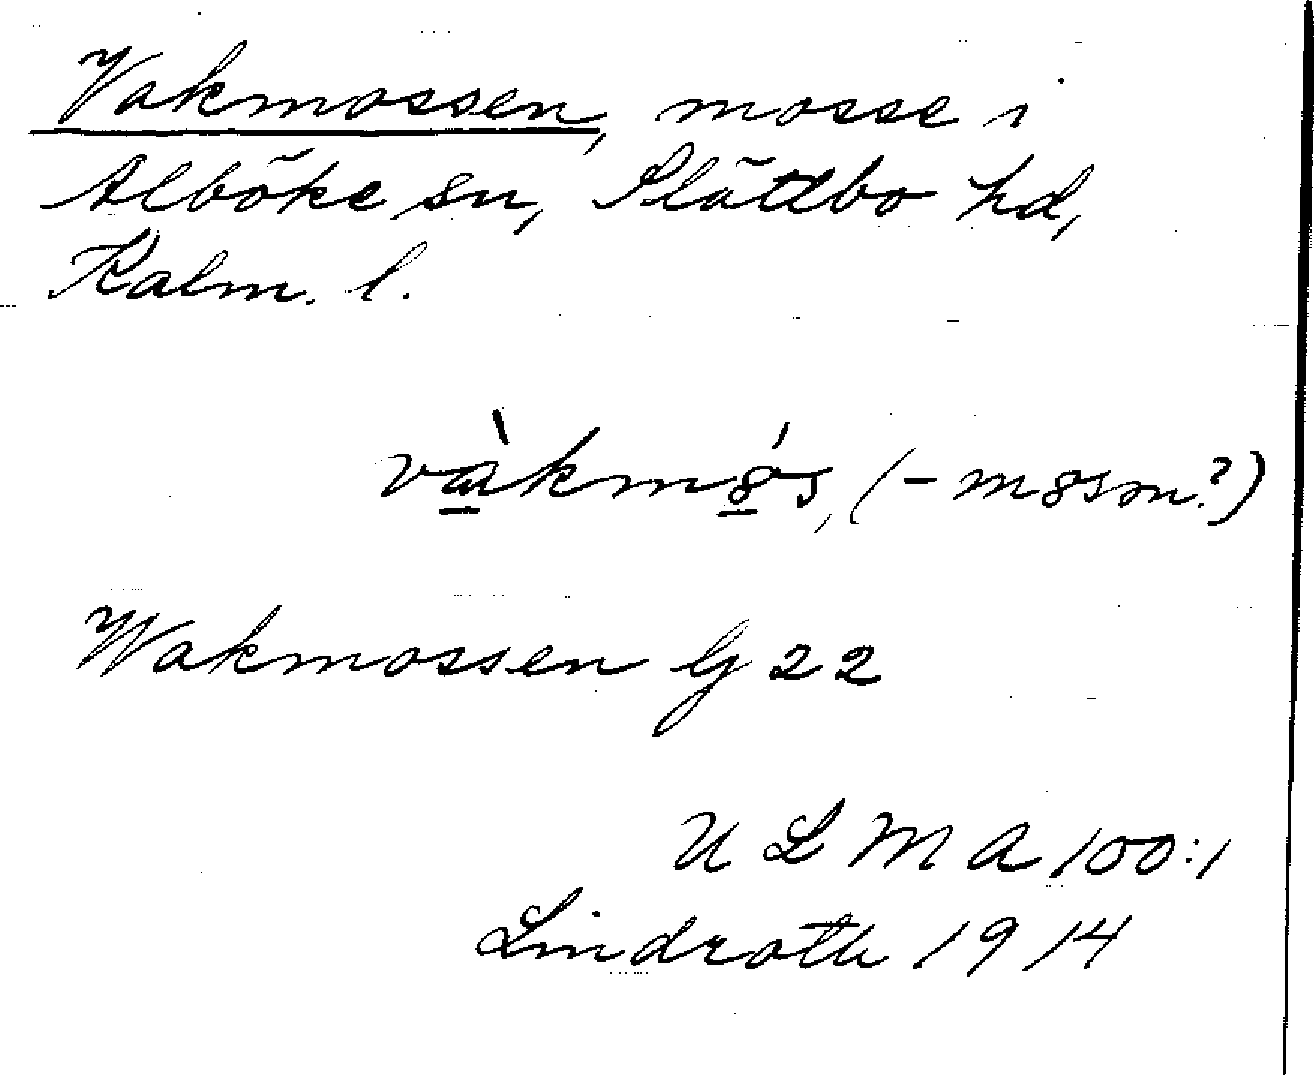 Vakmossen, mosse i
Alböke sn, Slättbo hd,
Kalm. l.
vàkmós, (-mosm?)
Wakmossen G 22
U L M A 100:1
Lindroth 1914